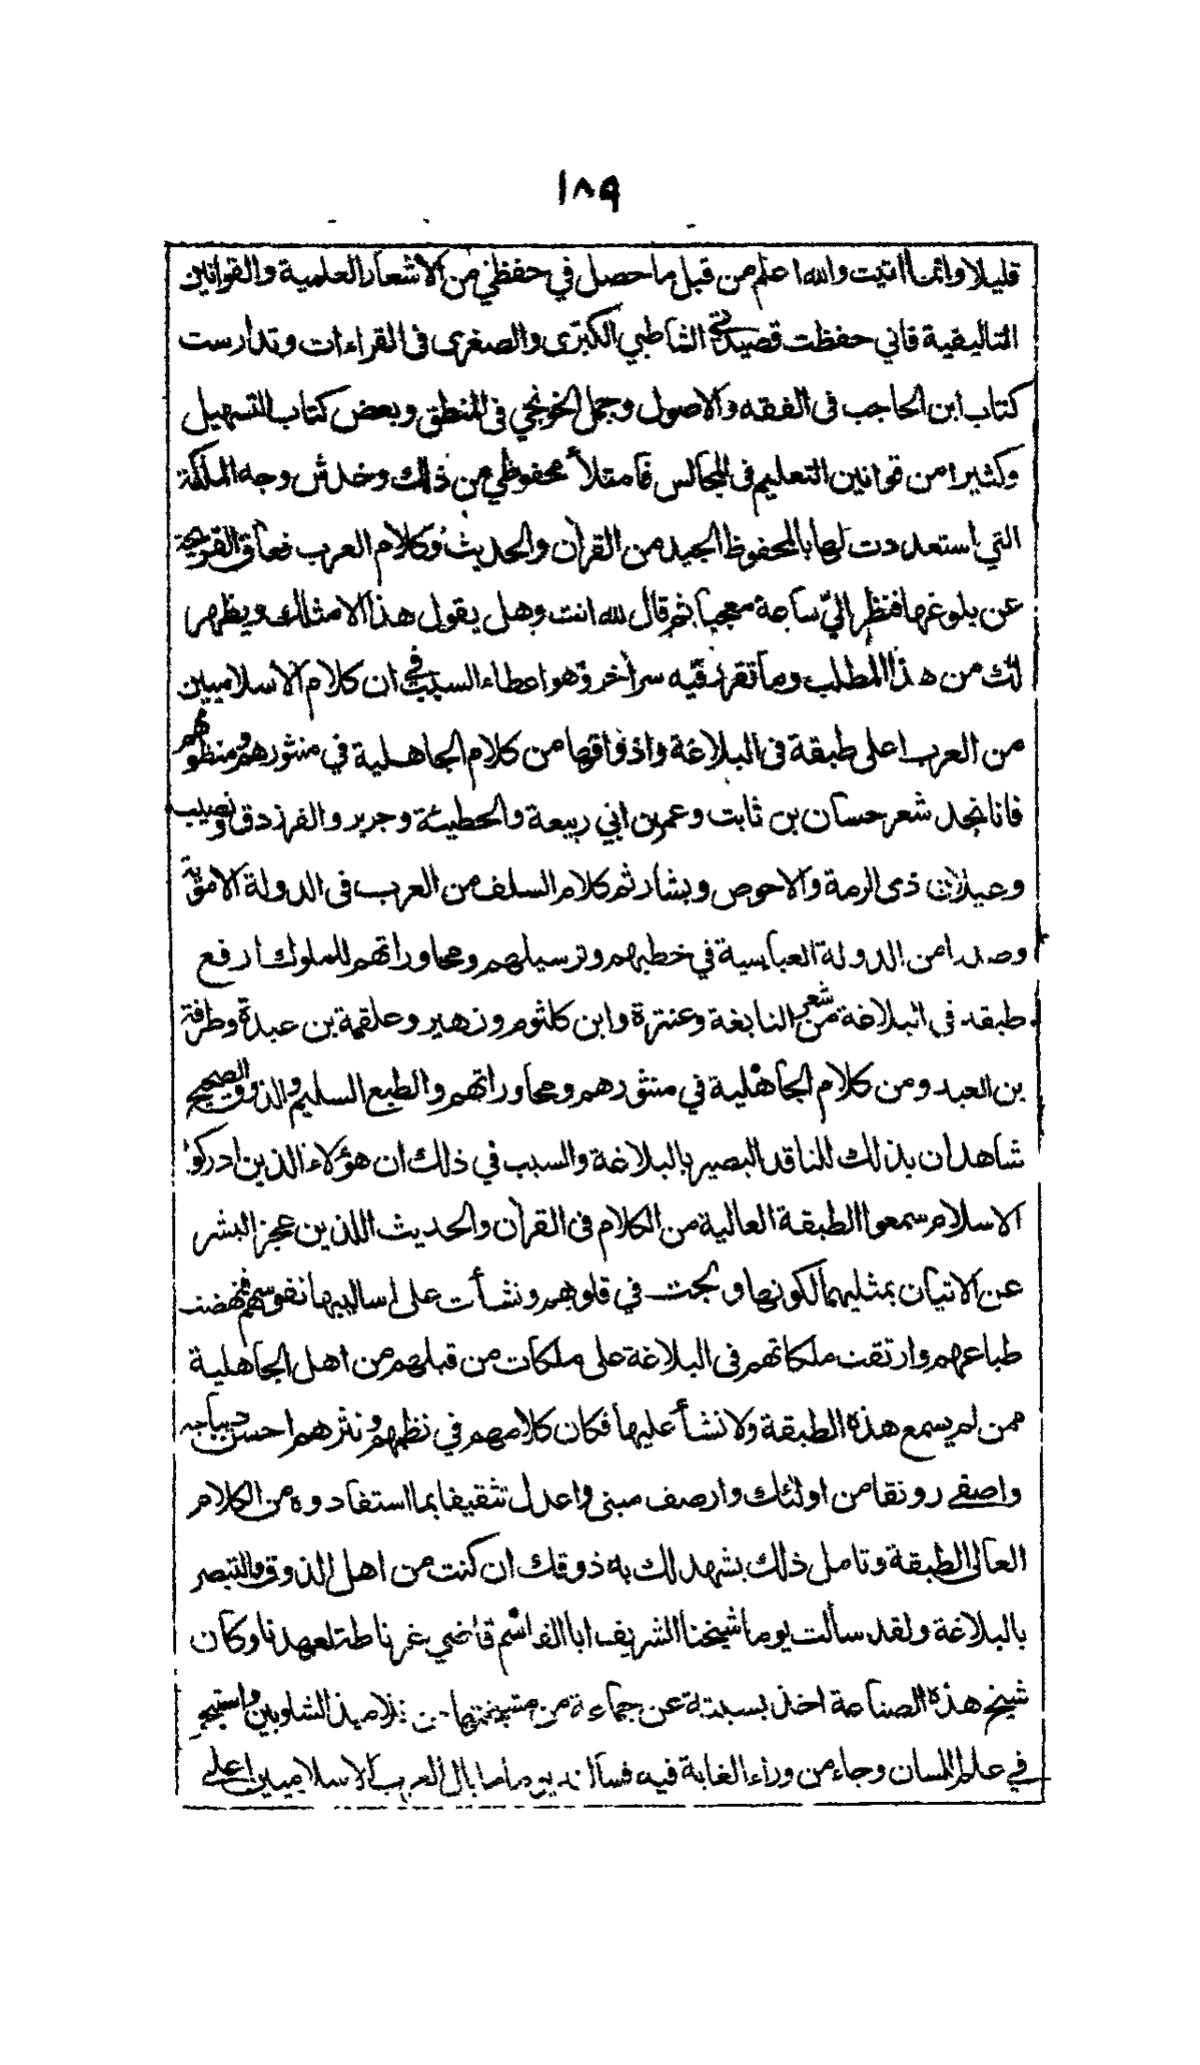 ١٨٩
قليلا وانما اتيت والله اعلم من قبل ما حصل في حفظي من الاشعار العلمية والقوانين
التاليفية فاني حفظت قصيدتي الشاطبي الكبرى والصغرى فى القراءات وتدارست
كتاب ابن الحاجب فى الفقه والاصول وجمل الخونجي فى المنطق وبعض كتاب التسهيل
وكثيرا من قوانين التعليم فى المجالس فامتلأ محفوظي من ذالك وخدش وجه الملكة
التي استعددت لها بالمحفوظ الجيد من القرآن والحديث وكلام العرب فعاق القريحة
عن بلوغها فنظر اليّ ساعة معجبا ثم قال لله انت وهل يقول هذا الا مثلك ويظهر
لك من هذا المطلب وما تقرر فيه سر آخر وهو اعطاء السبب في ان كلام الاسلاميين
من العرب اعلى طبقة فى البلاغة واذواقها من كلام الجاهلية في منثورهم ومنظومهم
فانا نجد شعر حسان بن ثابت وعمر بن ابي ربيعة والحطيئة وجرير والفرزدق ونصيب
وغيلان ذى الرمة والاحوص وبشار ثم كلام السلف من العرب فى الدولة الاموية
وصدرا من الدولة العباسية في خطبهم وترسيلهم ومحاوراتهم للملوك ارفع
طبقة في البلاغة من شعر النابغة وعنترة وابن كلثوم وزهير وعلقمة بن عبدة وطرفة
بن العبد ومن كلام الجاهلية في منثورهم ومحاوراتهم والطبع السليم والذوق الصحيح
شاهدان بذلك للناقد البصير بالبلاغة والسبب في ذلك ان هؤلاء الذين ادركوا
الاسلام سمعوا الطبقة العالية من الكلام فى القرآن والحديث اللذين عجز البشر
عن الاتيان بمثليهما لكونها ولجت في قلوبهم ونشأت على اساليبها نفوسهم فنهضت
طباعهم وارتقت ملكاتهم فى البلاغة على ملكات من قبلهم من اهل الجاهلية
ممن لم يسمع هذه الطبقة ولا نشأ عليها فكان كلامهم في نظمهم ونثرهم احسن ديباجه
واصفى رونقا من اولئك وارصف مبنى واعدل تثقيفا بما استفادوه من الكلام
العالى الطبقة وتامل ذلك يشهد لك به ذوقك ان كنت من اهل الذوق والتبصر
بالبلاغة ولقد سألت يوما شيخنا الشريف ابا القاسم قاضي غرناطة لعهدنا وكان
شيخ هذه الصناعة اخذ بسبتة عن جماعة من مشيختها من تلاميذ الشلوبين واستبحر
في علم اللسان وجاء من وراء الغاية فيه فسألته يوما ما بال العرب الاسلاميين اعلى